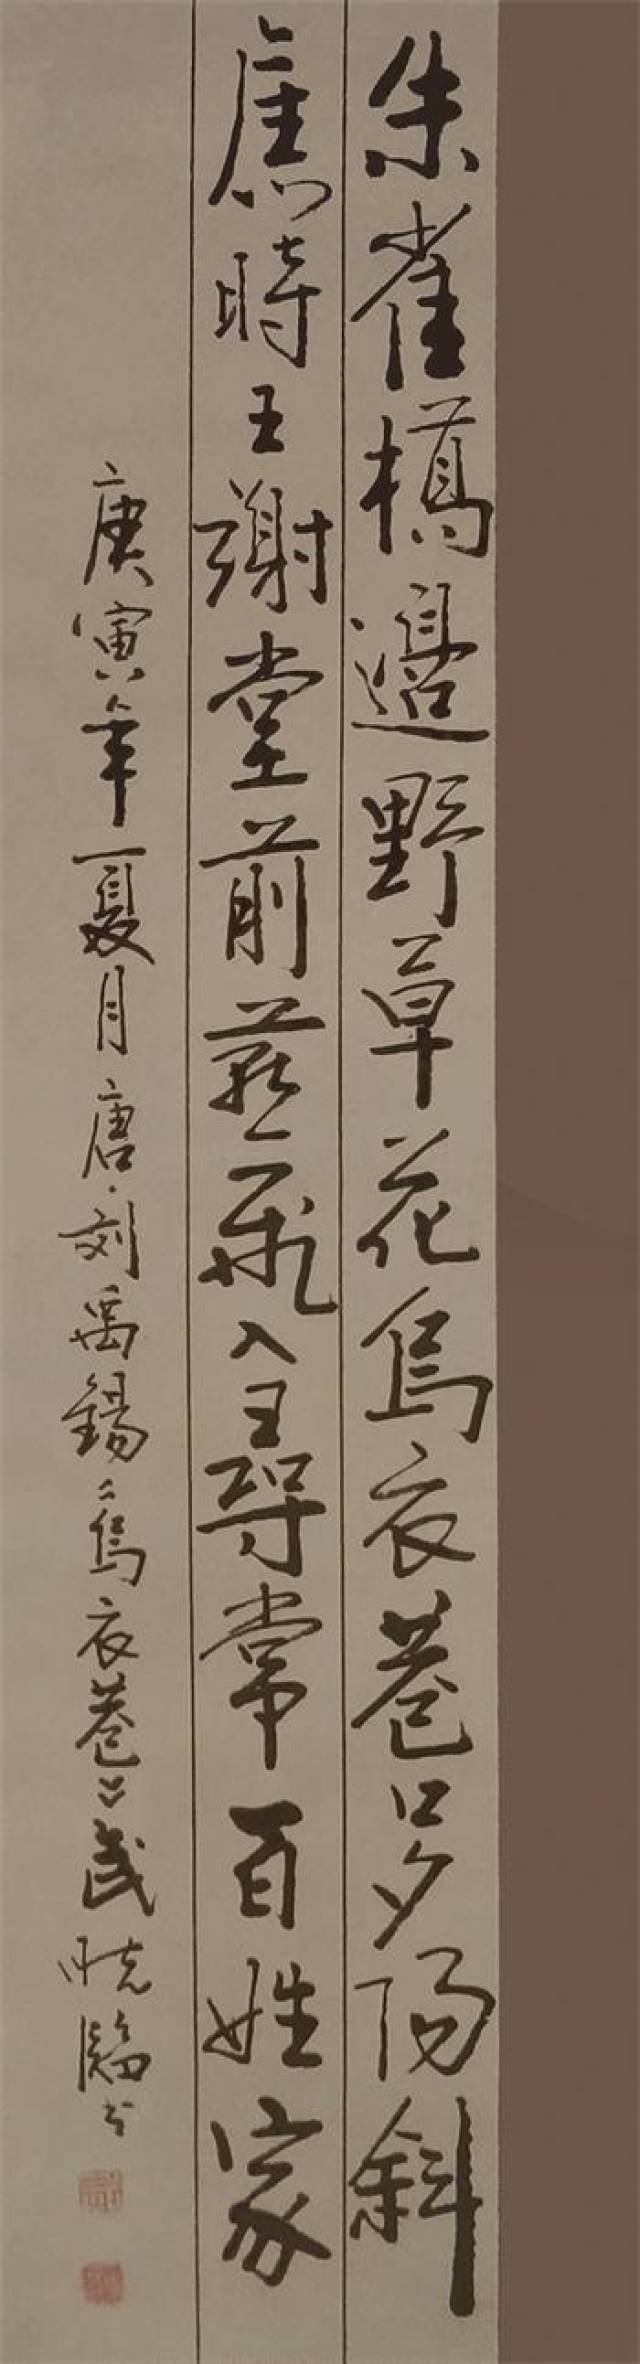 朱雀橋邊野草花烏衣巷口夕陽斜
舊時王謝堂前燕飛入尋常百姓家
庚寅年夏月唐·刘禹錫〝烏衣巷〞武晓臨书